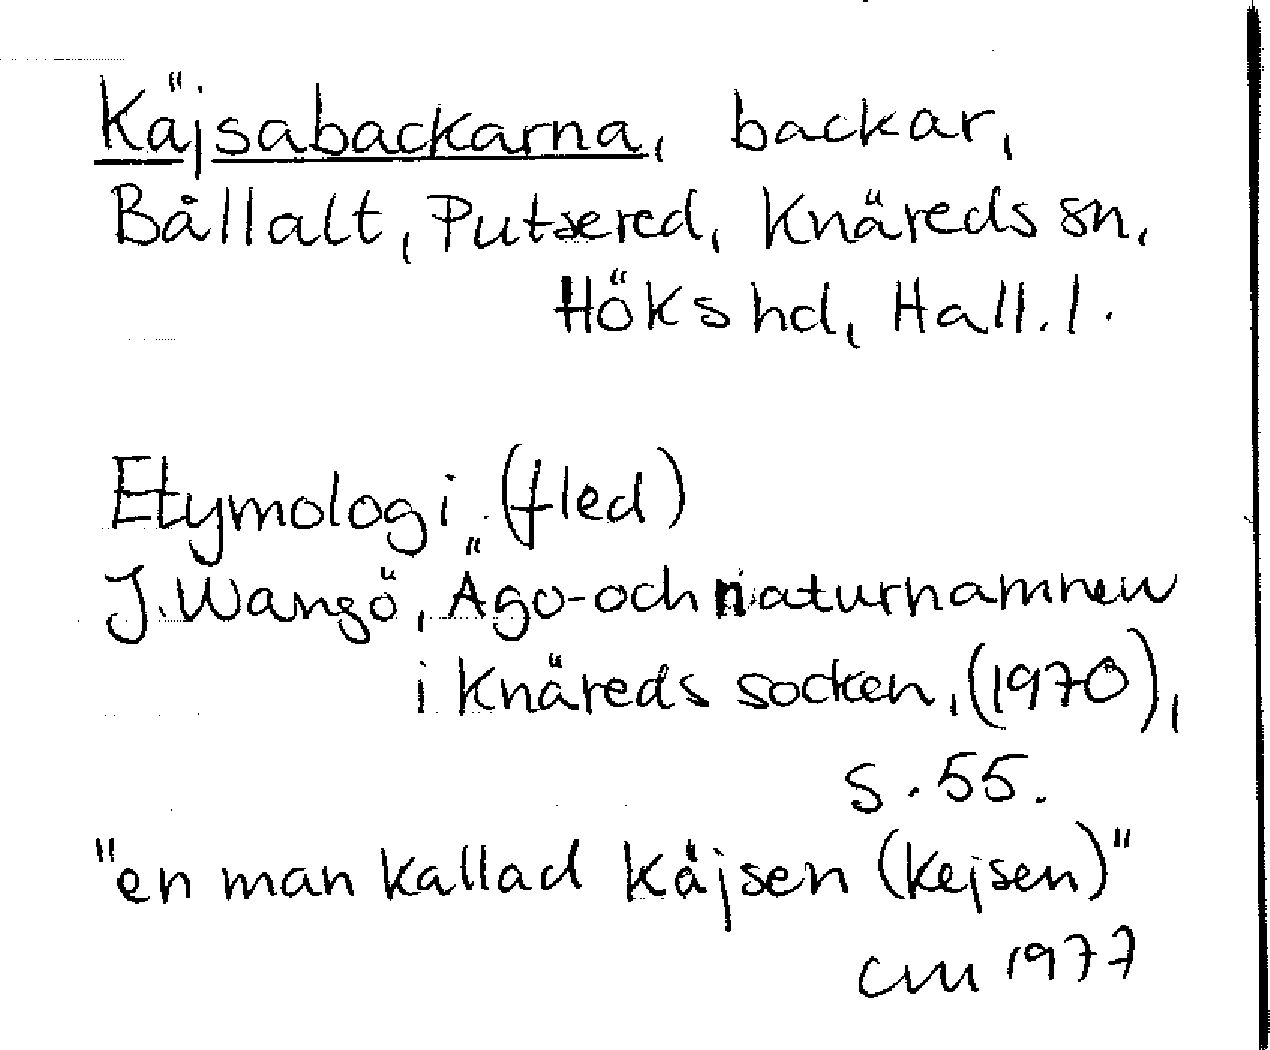 Käjsabackarna, backar,
Bållalt, Putsered, Knäreds sn,
Höks hd, Hall. l.
Etymologi (fled)
J. Wangö, Ägo- och naturnamnen
i Knäreds socken, (1970),
s. 55.
"en man kallad Käjsen (Kejsen)"
CM 1977